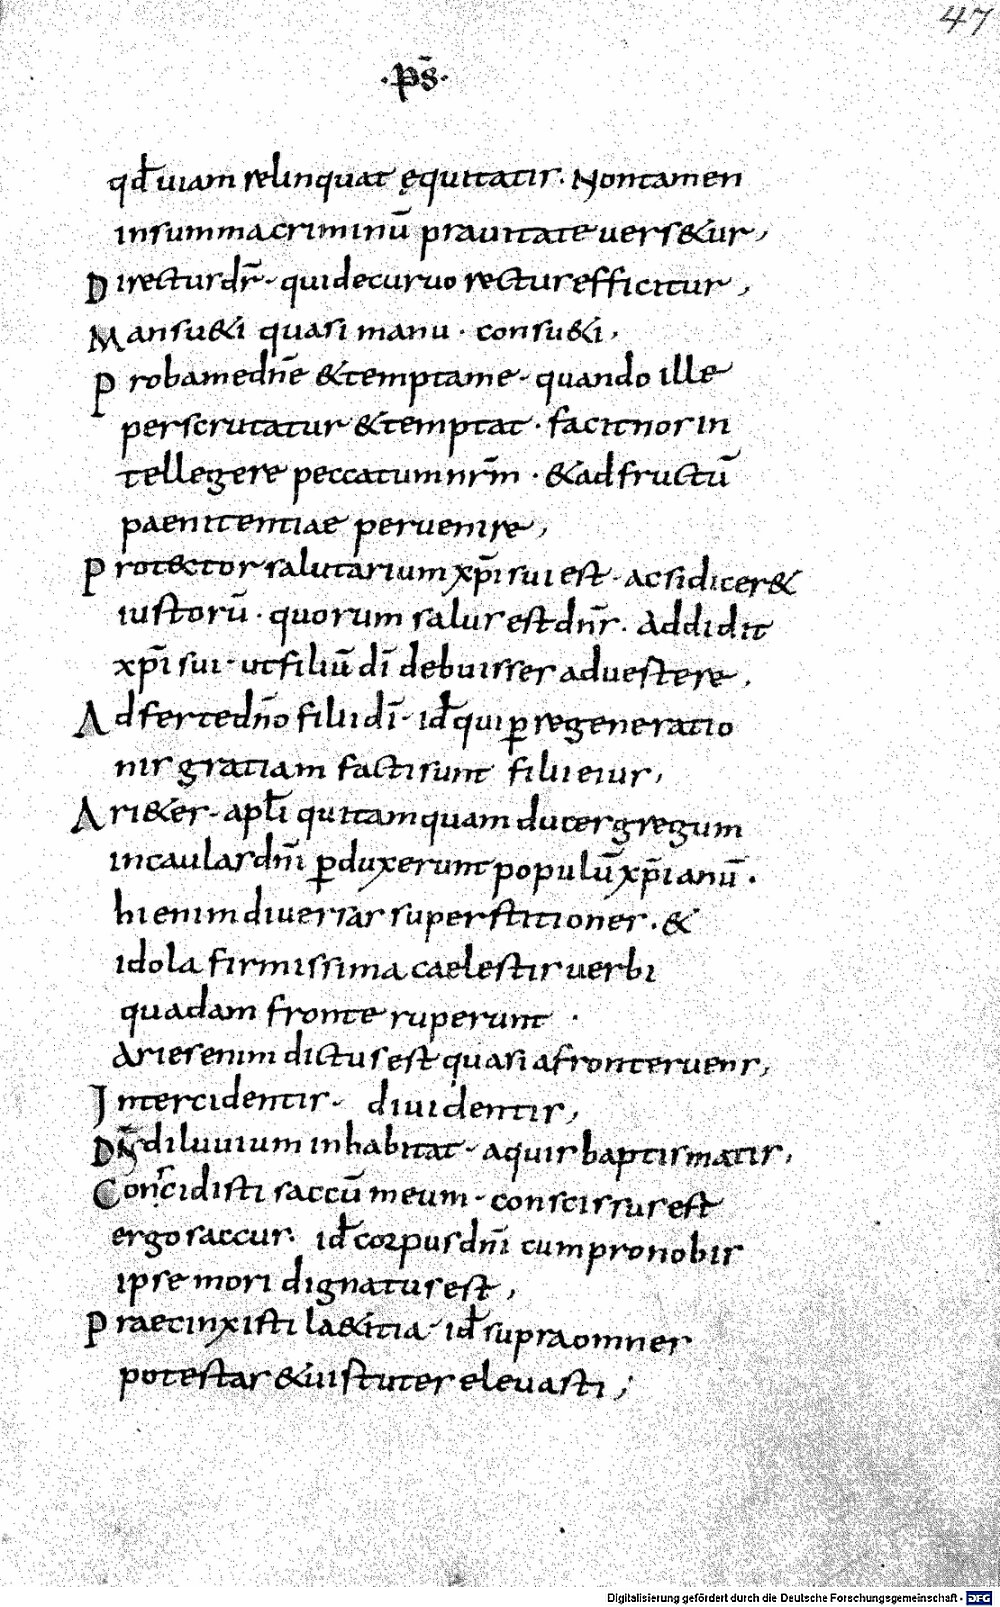 47
·p̄s·
qđ uiam relinquat ęquitatis. Non tamen
in summa criminū prauitate uers&ur,
Directus dr̄· qui de curuo rectus efficitur,
Mansu&i quasi manu · consu&i,
Proba me dn̄e & tempta me· quando ille
perscrutatur & temptat · facit nos in
tellegere peccatum nr̄m · & ad fructū
paenitentiae peruenire,
Prot&ctor salutarium xp̄i sui est· ac si dicer&
iustorū · quorum salus est dn̄s. Addidit
xp̄i sui· ut filiū dī debuisses aduertere,
Adferte dn̄o filii dī· iđ qui ꝑ regeneratio
nis gratiam facti sunt filii eius,
Ari&es· apłi qui tamquam duces gregum
in caulas dn̄i ꝑduxerunt populū xp̄ianū.
hi enim diuersas superstitiones. &
idola firmissima caelestis uerbi
quadam fronte ruperunt ·
Aries enim dictus est quasi a fronte ruens,
Intercidentis· diuidentis,
Dn̄s diluuium inhabitat· aquis baptismatis,
Concidisti saccū meum· conscissus est
ergo saccus· iđ corpus dn̄i cum pro nobis
ipse mori dignatus est,
Praecinxisti me la&itia· iđ supra omnes
potestas & uistutes eleuasti,
Digitalisierung gefördert durch die Deutsche Forschungsgemeinschaft - DFG